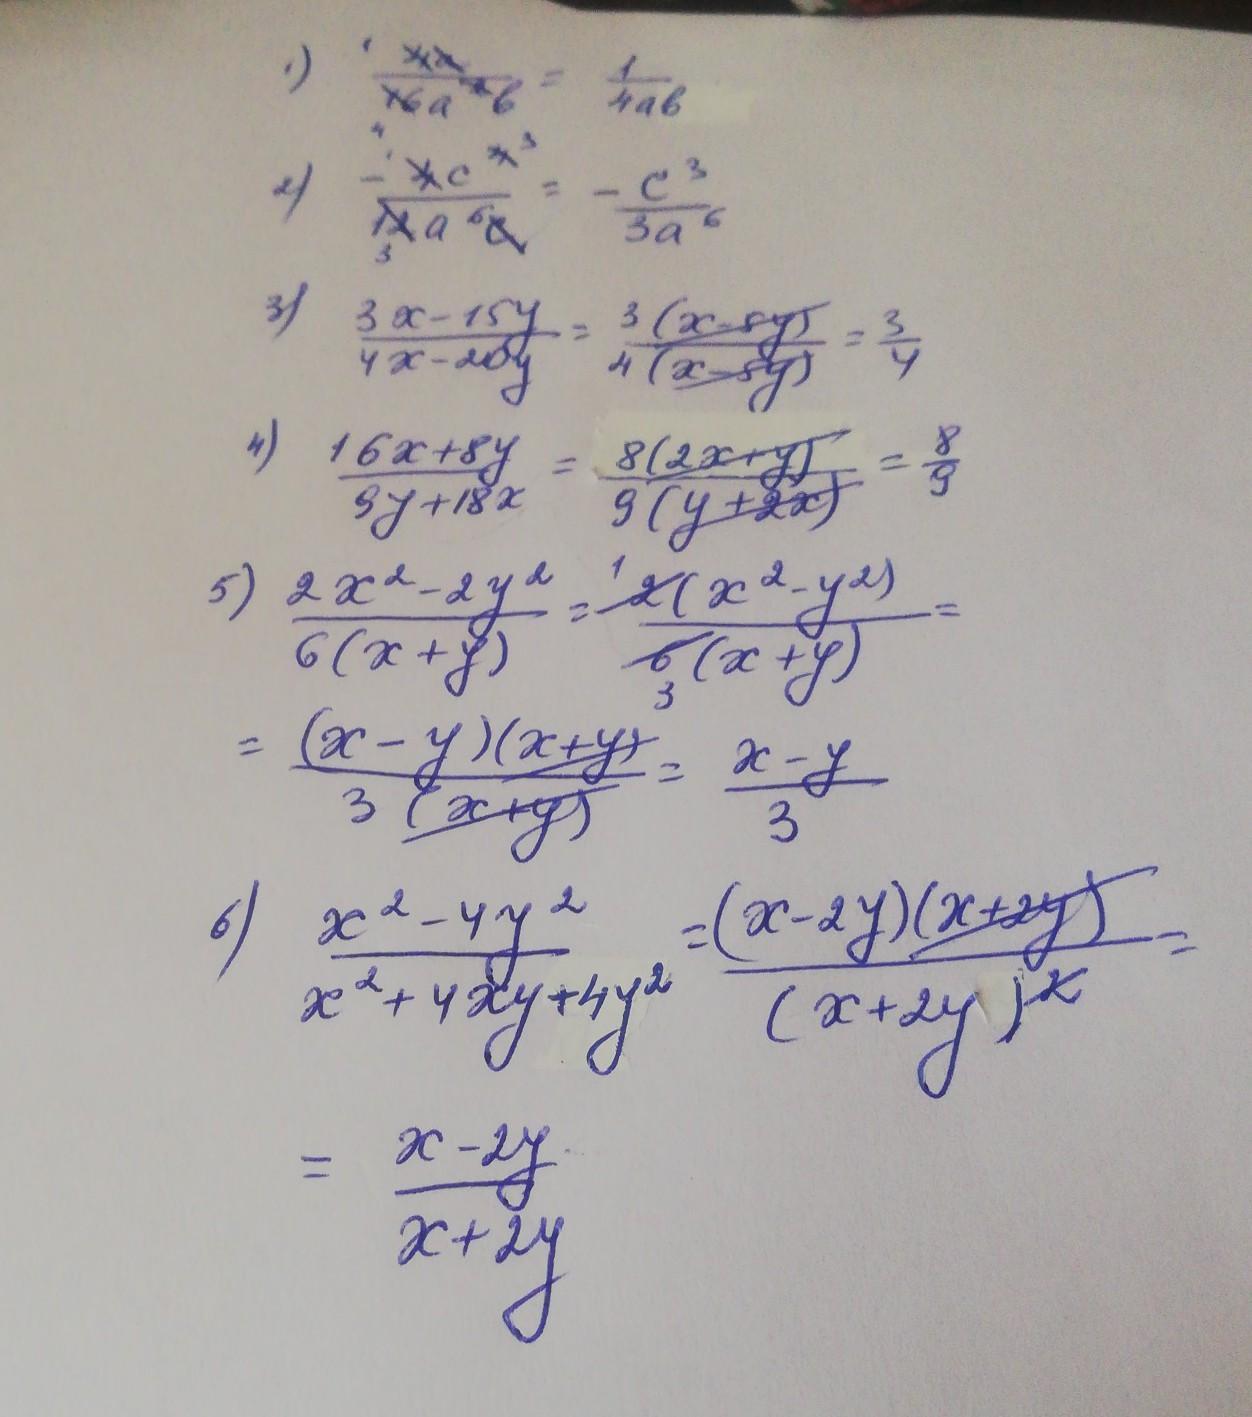 1) 4a/16a²b = 1/4ab
2) -4c⁴/12a⁶c = -c³/3a⁶
3) 3x-15y/4x-20y = 3(x-5y)/4(x-5y) = 3/4
4) 16x+8y/9y+18x = 8(2x+y)/9(y+2x) = 8/9
5) 2x²-2y²/6(x+y) = 2(x²-y²)/6(x+y) =
= (x-y)(x+y)/3(x+y) = x-y/3
6) x²-4y²/x²+4xy+4y² = (x-2y)(x+2y)/(x+2y)² =
= x-2y/x+2y